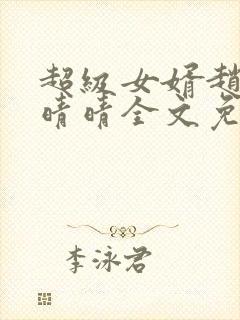 超級女婿趙
晴晴全文免
李泳君